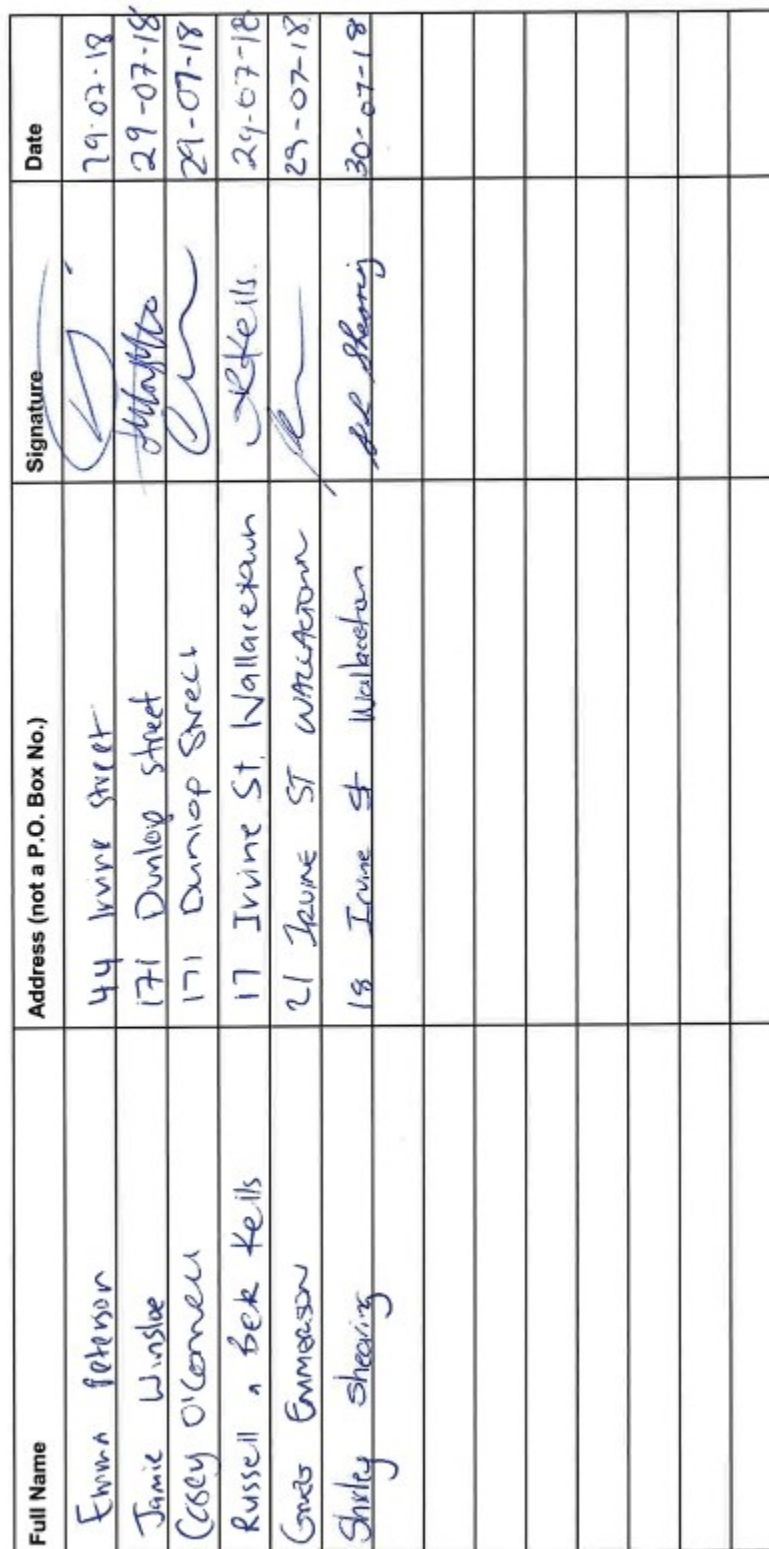 Full Name Address (not a P.O. Box No.) Signature Date
Emma Peterson 44 Irvine Street 29.07.18
Jamie Winsloe 171 Dunlop Street 29-07-18
Casey O'Connell 171 Dunlop Street 29-07-18
Russell n Bek Keils 17 Irvine St. Wallacetown Keils. 29-07-18
Emmerson 21 IRVINE ST WALLACETOWN 29-07-18
Shirley Shearing 18 Irvine St Wallacetown Shearing 30-07-18